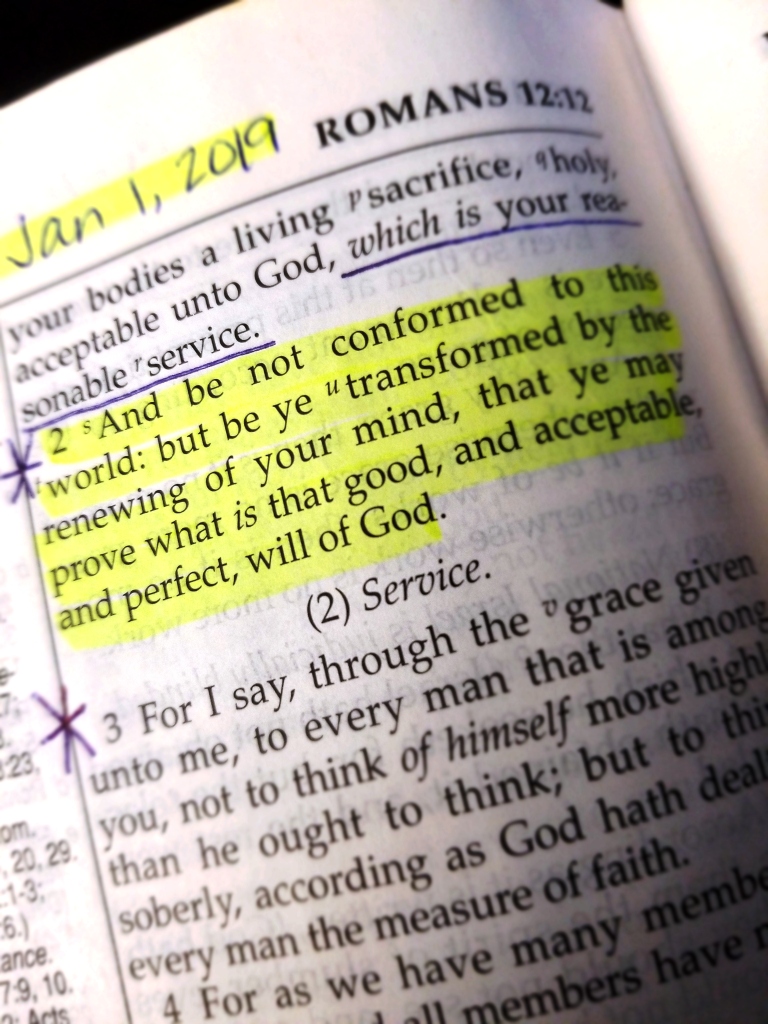 Jan 1, 2019
ROMANS 12:12
your bodies a living p sacrifice, q holy,
acceptable unto God, which is your rea-
sonable r service.
2 s And be not conformed to this
t world: but be ye u transformed by the
renewing of your mind, that ye may
prove what is that good, and acceptable,
and perfect, will of God.
(2) Service.
3 For I say, through the v grace given
unto me, to every man that is among
you, not to think of himself more highl
than he ought to think; but to thi
soberly, according as God hath deal
every man the measure of faith.
4 For as we have many membe
all members have
:23.
om.
, 20, 29.
:1-3;
:6.)
ance.
7:9, 10.
Acts